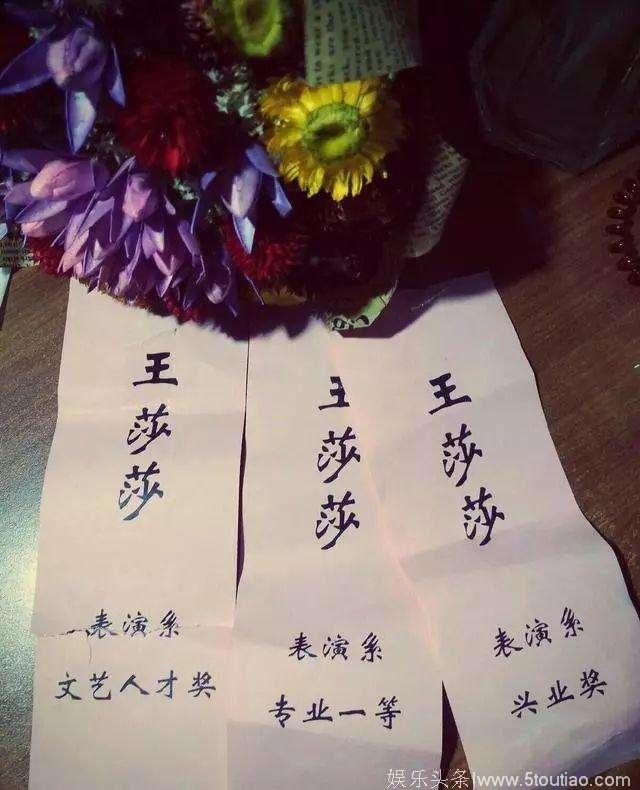 王
莎
莎
表演系
文艺人才奖
王
莎
莎
表演系
专业一等
王
莎
莎
表演系
兴业奖
娱乐头条|www.5toutiao.com